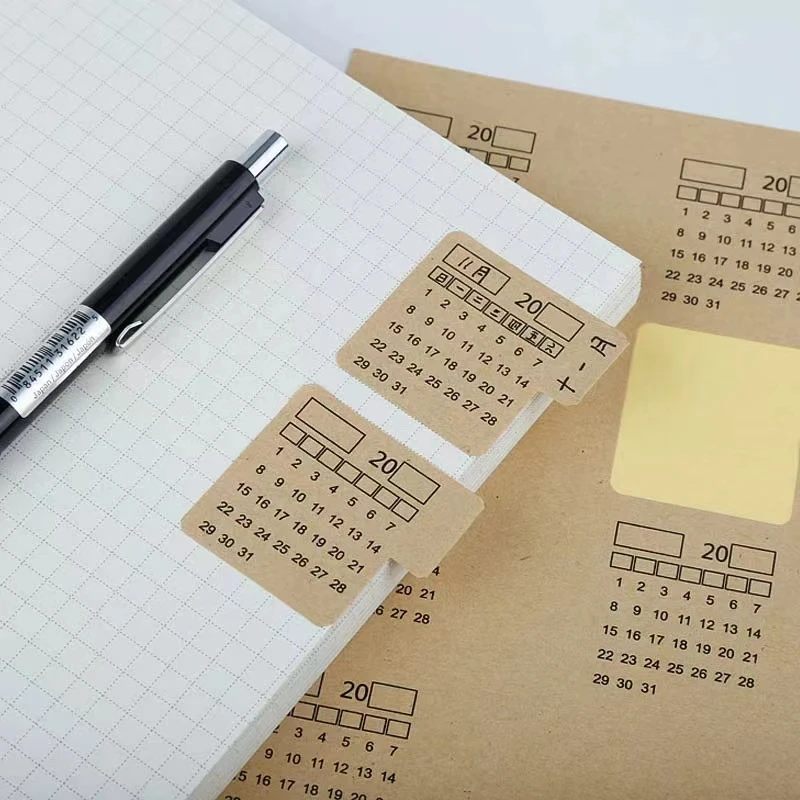 20
20
1 2 3 4 5 6
8 9 10 11 12 13
15 16 17 18 19 20
22 23 24 25 26 27
29 30 31
0 84511 31622 5
Japan / Japon / Japón
11月 20
日 一 二 三 四 五 六
1 2 3 4 5 6 7
8 9 10 11 12 13 14
15 16 17 18 19 20 21
22 23 24 25 26 27 28
29 30 31
十一月
20
1 2 3 4 5 6 7
8 9 10 11 12 13 14
15 16 17 18 19 20 21
22 23 24 25 26 27 28
29 30 31
20 21
26 27 28
20
1 2 3 4 5 6 7
8 9 10 11 12 13 14
15 16 17 18 19 20 21
22 23 24 25 26 27 28
29 30 31
20
3 4 5 6 7
9 10 11 12 13 14
15 16 17 18 19 20 21